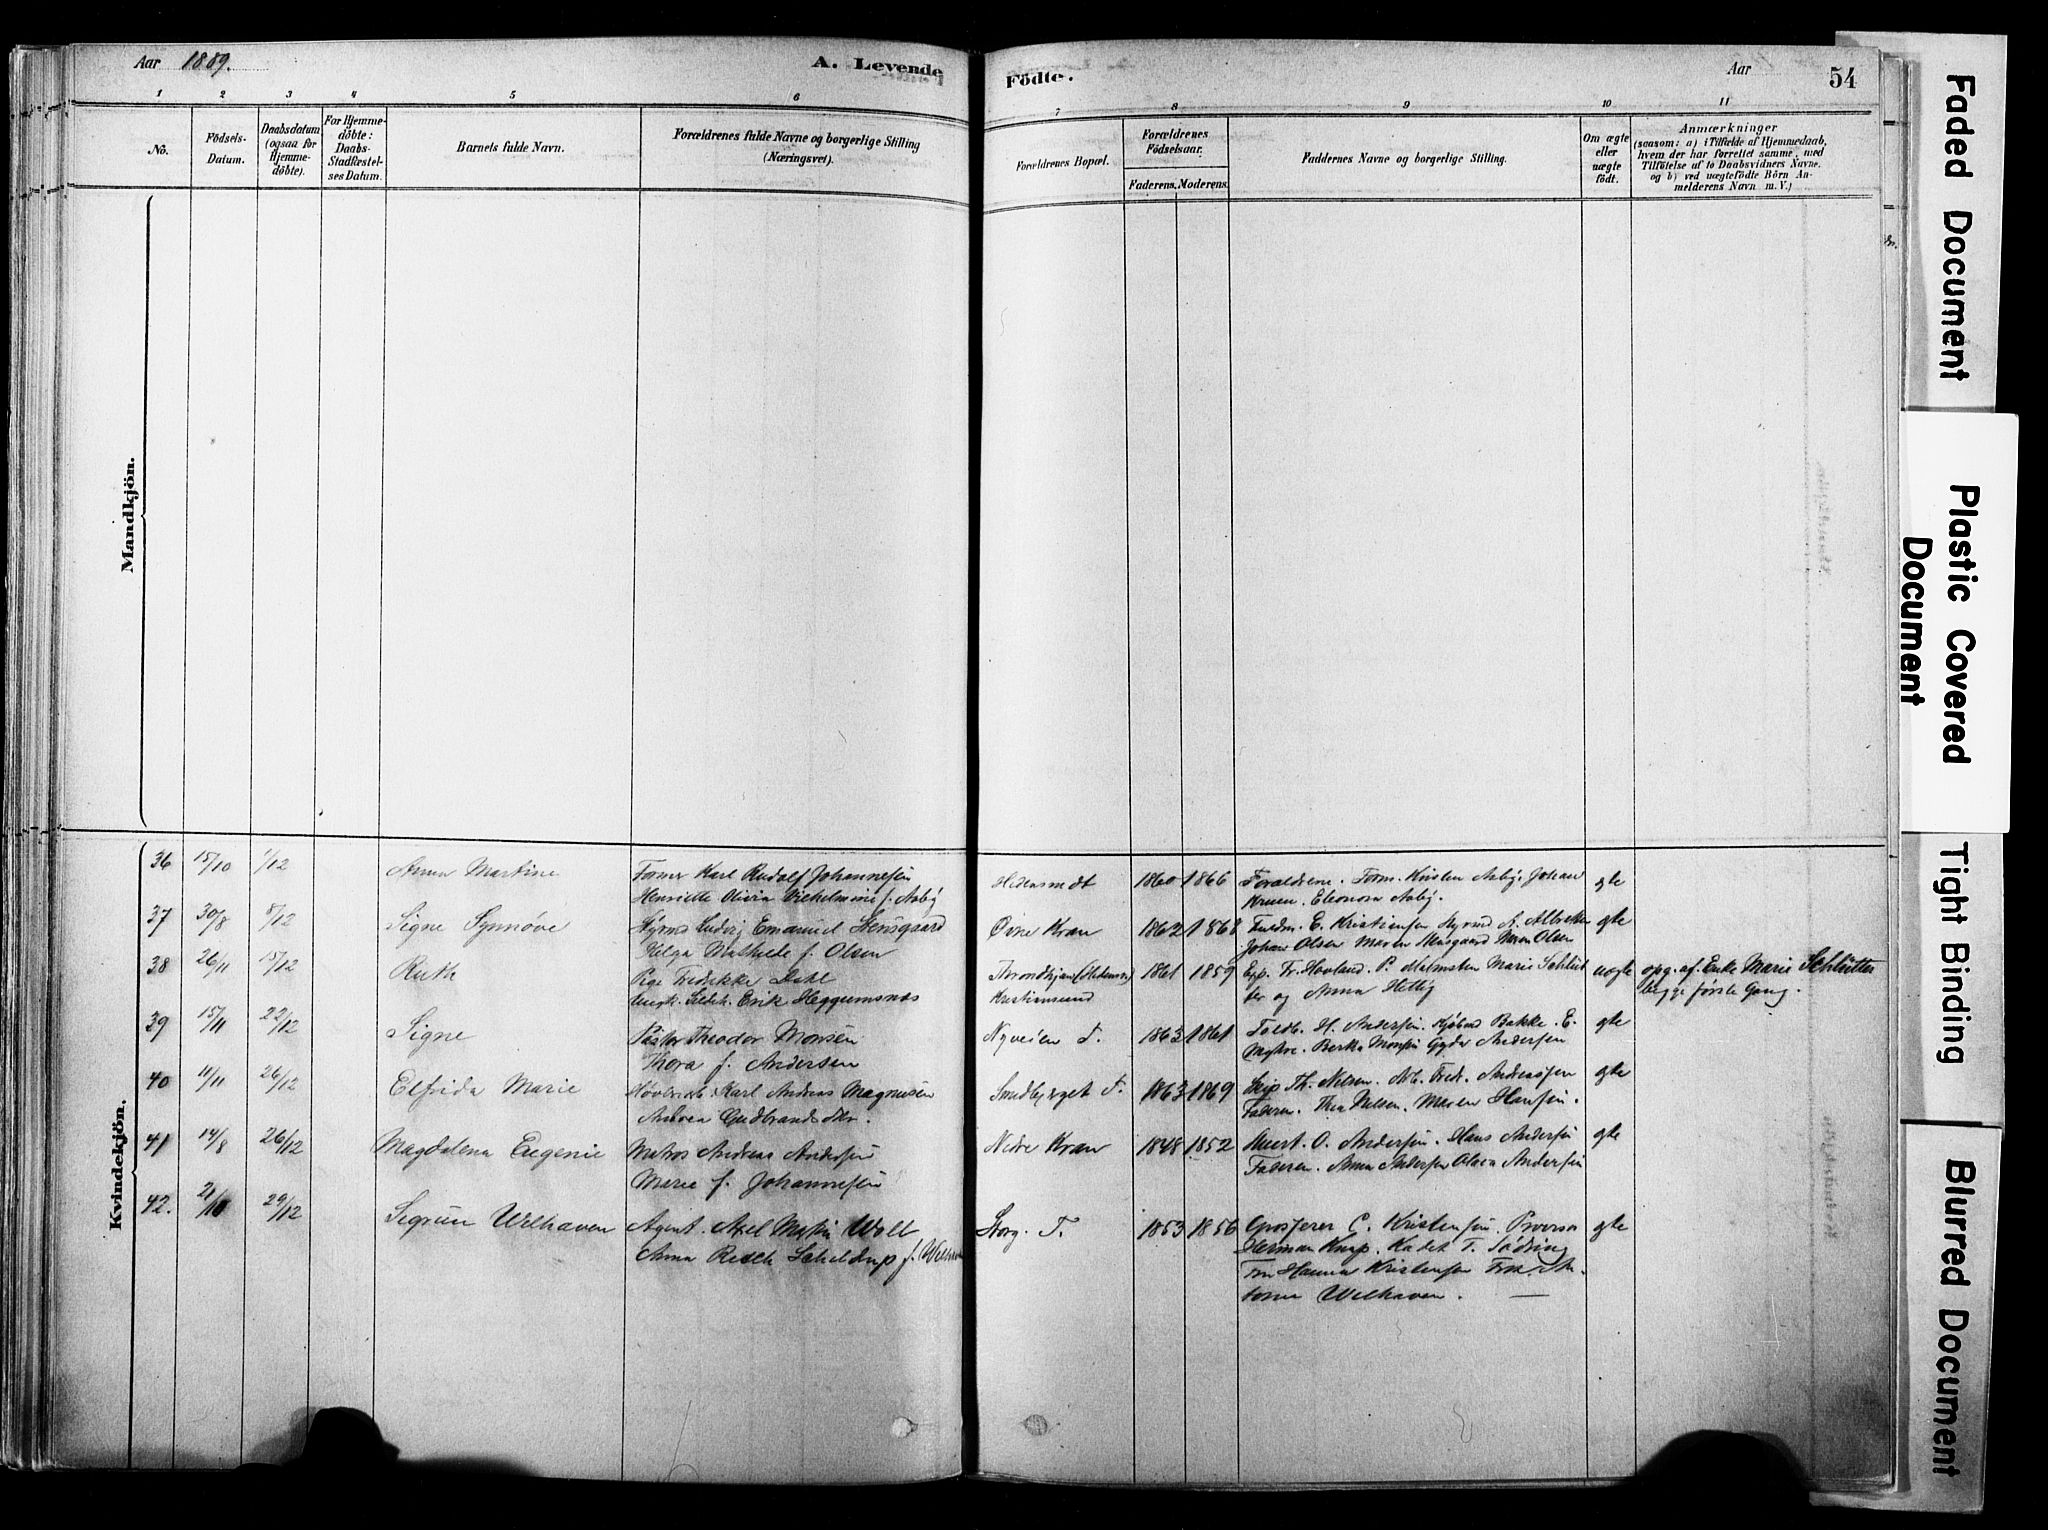 Aar 1889. A. Levende Födte. Aar 54
1 2 3 4 5 6 7 8 9 10 11
No.
Födsels-Datum.
Daabsdatum (ogsaa for Hjemme-döbte).
For Hjemme-döbte: Daabs-Stadfæstel-ses Datum.
Barnets fulde Navn.
Forældrenes fulde Navne og borgerlige Stilling (Næringsvei).
Forældrenes Bopæl.
Forældrenes Födselsaar.
Faderens. Moderens.
Faddernes Navne og borgerlige Stilling.
Om ægte eller uægte födt.
Anmærkninger
(saasom: a) i Tilfælde af Hjemmedaab, hvem der har forrettet samme, med Tilföielse af to Daabsvidners Navne, og b) ved uægtefödte Börn An-melderens Navn m. V.)
Mandkjön.
Kvindekjön.
36 15/10 1/12 Anna Martine Former Karl Rudolf Johannesen 1860 1866 Forældrene. Form. Kristen Aaby. Johan ægte
Henriette Olivia Vilhelmine f. Aaby Kruen. Eleonora Aaby.
37 30/8 8/12 Signe Synnöve Styrmd Ludvig Emanuel Stensgaard Övre Kran 1862 1868 Fuldm. E. Kristiansen Styrmd A. Albretsen ægte
Helga Mathilde f. Olsen Johan Olsen Maren Stensgaard Maren Olsen
38 26/11 15/12 Ruth Pige Fredrikke Dahl 1861 1859 Exp. Fr. Hovland. P. Malmsten Marie Schlüt uægte opg. af Enke Marie Schlütter
Ungk. Erik Heggumsnæs Kristiansund ter og Anna Hettig begge første Gang.
39 15/11 22/12 Signe Pastor Theodor Monsen Nyveien T. 1863 1861 H. Andersen. Bakke. E. ægte
Thora f. Andersen Myhre. Berta Monsen Gyda Andersen
40 11/11 26/12 Elfrida Marie Karl Andreas Magnusen Smedbjerget T. 1863 1869 Skip Th. Nielsen. Arb. Fredr. Andreassen ægte
Andrea Gudbrandsdtr. Faderen. Thea Nilsen. Maren Hansen.
41 14/8 26/12 Magdalena Eugenie Matros Andreas Andersen Nedre Kran 1848 1852 O. Andersen. Hans Andersen ægte
Marie f. Johannesen Faderen. Anna Andersen Olava Andersen
42. 21/10 29/12 Sigrun Welhaven Agent. Axel Martin Wolt Storg. T. 1853 1856 Grosserer C. Kristensen. Provisor ægte
Anna Resch Scheldrup f. Welhaven Herman Knap. Kadet T. Södring
Fru Hanna Kristensen Frk. An-
tonie Welhaven.
Faded Document
Plastic Covered Document
Tight Binding
Blurred Document